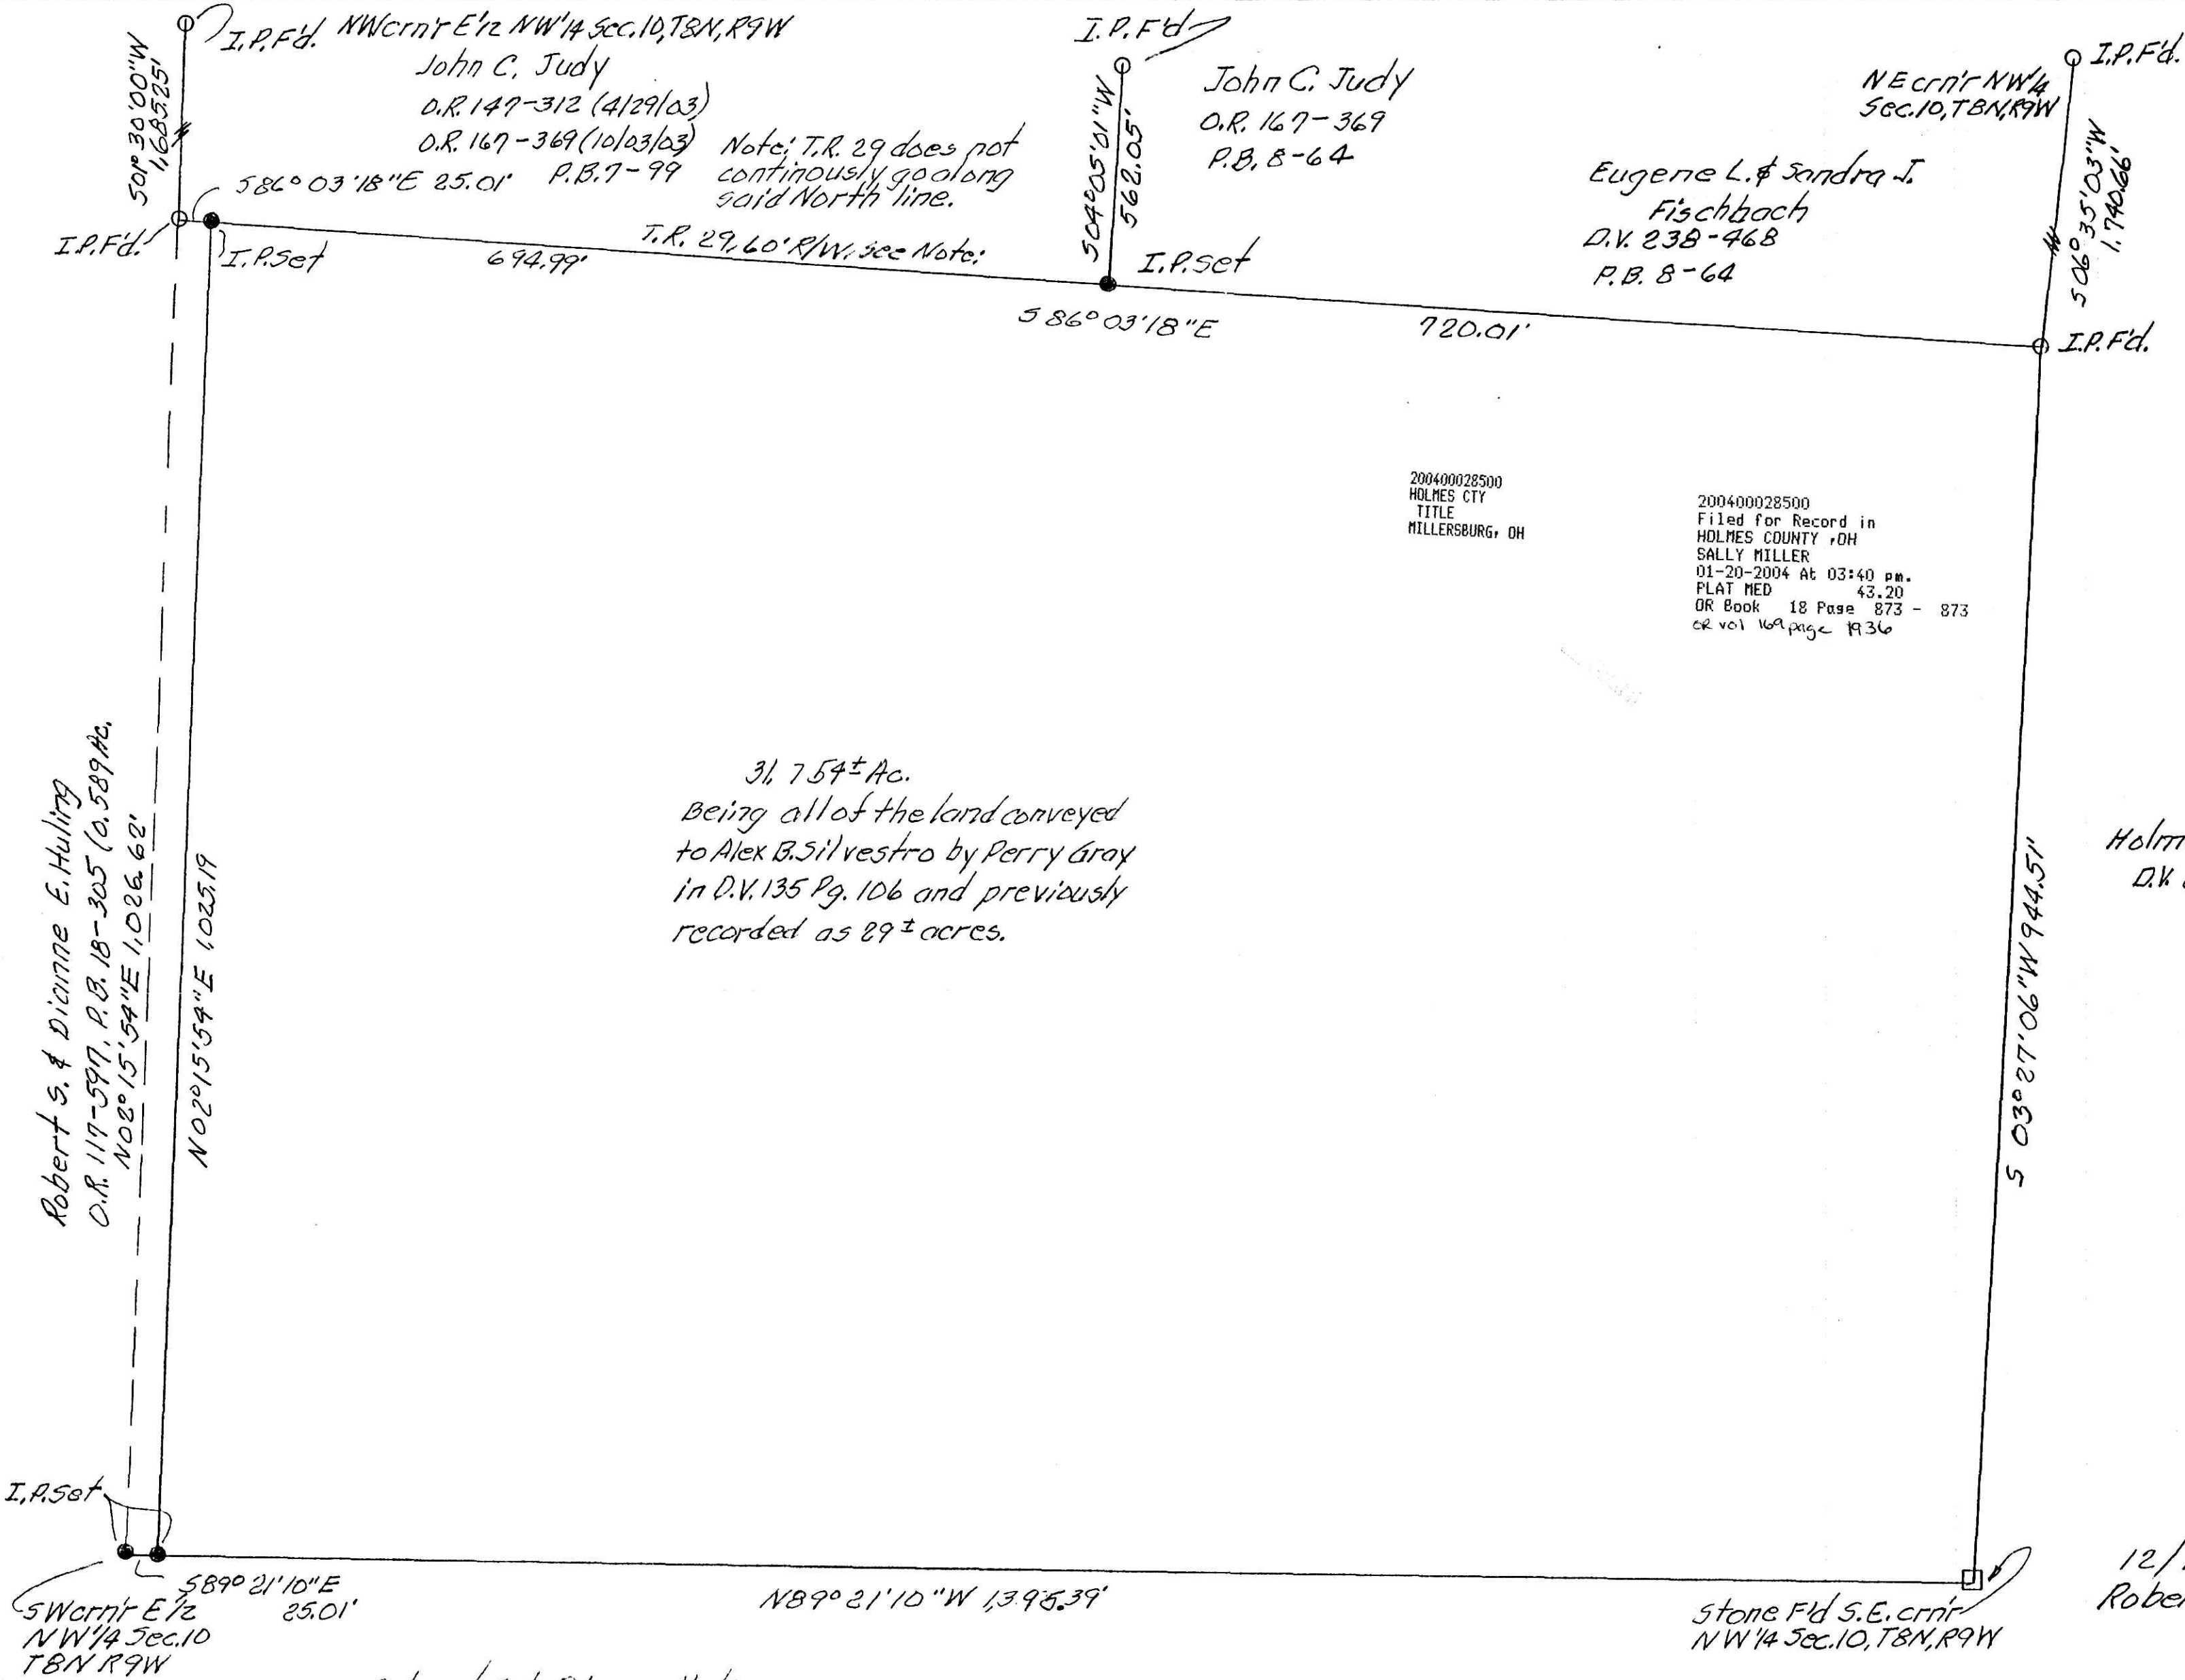 I.P.F'd. NWcrn'r E'½ NW'¼ Sec.10,T8N,R9W
John C. Judy
O.R. 147-312 (4/29/03)
O.R. 167-369 (10/03/03)
P.B. 7-99
Note: T.R. 29 does not
continously go along
said North line.
S01° 30'00"W
1,685.25'
S86° 03'18"E 25.01'
I.P.F'd.
I.P.Set
694.99'
T.R. 29,60' R/W, see Note:
I.P.F'd
S04° 05'01"W
562.05'
I.P.set
John C. Judy
O.R. 167-369
P.B. 8-64
NE crn'r NW'¼
Sec.10,T8N,R9W
I.P.F'd.
Eugene L. & Sandra J.
Fischbach
D.V. 238-468
P.B. 8-64
S06° 35'03"W
1,740.66'
I.P.F'd.
S86° 03'18"E
720.01'
200400028500
HOLMES CTY
TITLE
MILLERSBURG, OH
200400028500
Filed for Record in
HOLMES COUNTY ,OH
SALLY MILLER
01-20-2004 At 03:40 pm.
PLAT MED 43.20
OR Book 18 Page 873 - 873
OR vol 169 page 1936
31.754± Ac.
Being all of the land conveyed
to Alex B. Silvestro by Perry Gray
in D.V. 135 Pg. 106 and previously
recorded as 29± acres.
Robert S. & Dianne E. Huling
O.R. 117-597, P.B. 18-305 (0.589 Ac.
N02° 15'54"E 1,026.62'
N02° 15'54"E 1,025.19
S 03° 27'06"W 944.51'
Holm
D.V.
I.P.Set
S89° 21'10"E
25.01'
SWcrn'r E'½
NW'¼ Sec.10
T8N R9W
N89° 21'10"W 1,395.39'
Stone F'd S.E. crn'r
NW'¼ Sec.10, T8N, R9W
12/
Rober